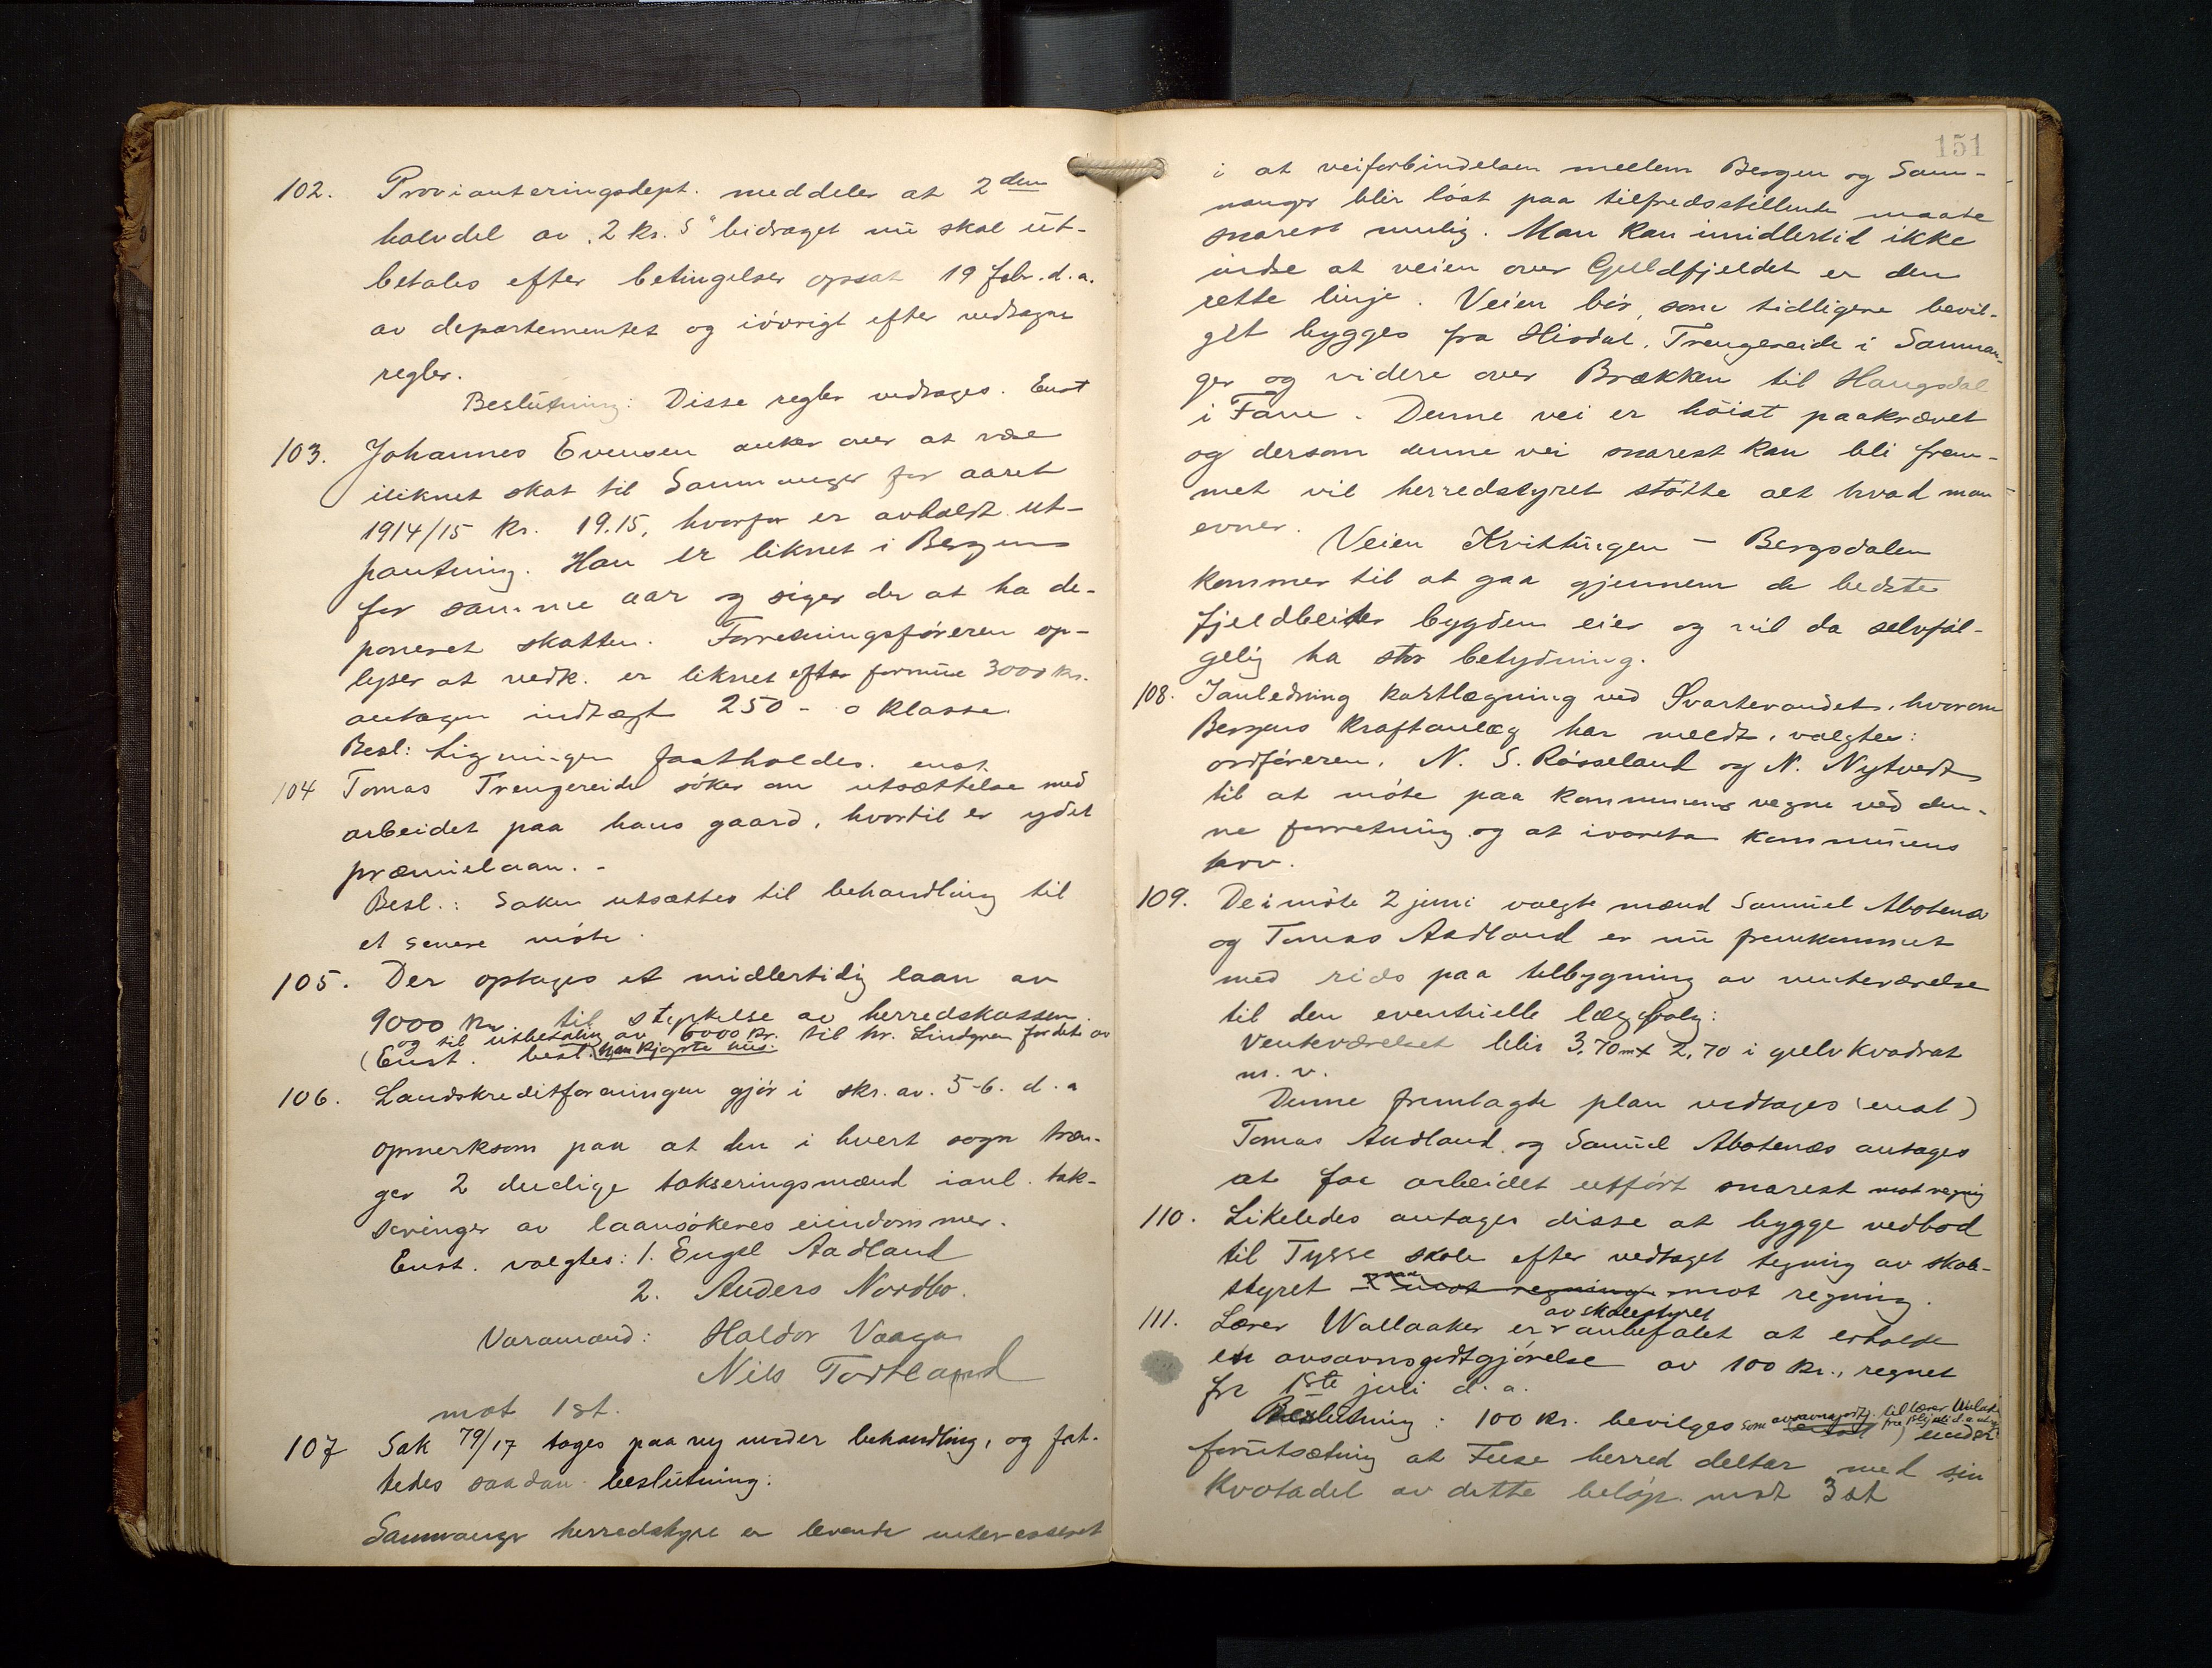 102. Provianteringsdept. meddeler at 2den
halvdel av "2 kr.s" bidraget nu skal ut-
betales efter betingelser opsat 19 febr. d.a.
av departementet og iövrigt efter vedtagne
regler.
Beslutning: Disse regler vedtages. Enst
103. Johannes Evensen anker over at være
iliknet skat til Samnanger for aaret
1914/15 kr. 19.15, hvorfor er avholdt ut-
pantning. Han er liknet i Bergen
for samme aar og siger der at ha de-
poneret skatten. Forretningsföreren op-
lyser at vedk. er liknet efter formue 3000 kr.
antagen indtægt 250 - 0 klasse
Besl: Ligningen fastholdes. enst.
104 Tomas Trengereide söker om utsættelse med
arbeidet paa hans gaard, hvortil er ydet
præmielaan. -
Besl.: Saken utsættes til behandling til
et senere möte.
105. Der optages et midlertidig laan av
9000 kr. til styrkelse av herredskassen
og til utbetaling av 6000 kr. til hr. Lindgren for det av
(Enst. besl. han kjøpte hus.
106. Landskreditforeningen gjör i skr. av. 5-6. d.a
opmerksom paa at den i hvert sogn træn-
ger 2 duelige takseringsmænd ianl. tak-
seringer av laansökeres eiendommer.
Enst. valgtes: 1. Engel Aadland
2. Anders Nordbo.
Varamænd: Haldor Vaage
Nils Tveitland
mot 1 st.
107 Sak 79/17 tages paa ny under behandling, og fat-
tedes saadan beslutning:
Samnanger herredstyre er levende interesseret
151
i at veiforbindelsen mellem Bergen og Sam-
nanger blir löst paa tilfredsstillende maate
snarest mulig. Man kan imidlertid ikke
indse at veien over Guldfjeldet er den
rette linje. Veien bör, som tidligere bevil-
get bygges fra Hisdal, Trengereide i Samnan-
ger og videre over Brækken til Haugsdal
i Fane. Denne vei er höist paakrævet
og dersom denne vei snarest kan bli frem-
met vil herredstyret stötte alt hvad man
evner.
Veien Kvittingen - Bergsdalen
kommer til at gaa gjennem de bedste
fjeldbeiter bygden eier og vil da selvföl-
gelig ha stor betydning.
108. Ianledning kartlægning ved Svartevandet, hvorom
Bergens Kraftanlæg har meldt, valgtes:
ordföreren, N. S. Rösseland og N. Nytvedt
til at möte paa kommunens vegne ved den-
ne forretning og at ivareta kommunens
tarv.
109. De i möte 2 juni valgte mænd Samuel Abotenæs
og Tomas Aadland er nu fremkommet
med rids paa tilbygning av venteværelse
til den eventuelle lægebolig:
Venteværelset blir 3,70m x 2,70 i gulvkvadrat
m. v.
Denne fremlagte plan vedtages (enst)
Tomas Aadland og Samuel Abotenæs antages
at faa arbeidet utfört snarest mot regning
110. Likeledes antages disse at bygge vedbod
til Tysse skole efter vedtaget tegning av skole-
styret mot regning mot regning.
111. Lærer Wallaaker er av skolestyret anbefalet at erholde
en avsavnsgodtgjörelse av 100 kr., regnet
fra 1ste juli d. a.
Beslutning: 100 kr. bevilges som avsavnsgodtg. til lærer under
forutsætning at Fuse herred deltar med sin
kvotadel av dette belöp. mot 3 st